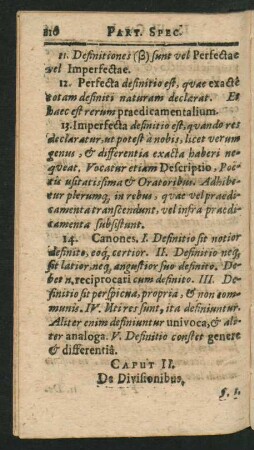 810 PART. SPEC.
11. Definitiones (β) sunt vel Perfectae
vel Imperfectae.
12. Perfecta definitio est, quae exactè
totam definiti naturam declarat. Et
haec est rerum praedicamentalium.
13. Imperfecta definitio est, quando res
declaratur, ut potest à nobis, licet verum
genus, & differentia exacta haberi ne-
queat. Vocatur etiam Descriptio, Poë-
tis usitatissima & Oratoribus. Adhibe-
tur plerumq; in rebus, quae vel praedi-
camenta transcendunt, vel infra praedi-
camenta subsistunt.
14. Canones. I. Definitio sit notior
definito, eoq; certior. II. Definitio neq;
sit latior, neq; angustior suo definito. De-
bet n. reciprocati cum definito. III. De-
finitio sit perspicua, propria, & non com-
munis. IV. Uti res sunt, ita definiuntur.
Aliter enim definiuntur univoca, & ali-
ter analoga. V. Definitio constet genere
& differentiâ.
CAPUT II.
De Divisionibus,
§. 1.